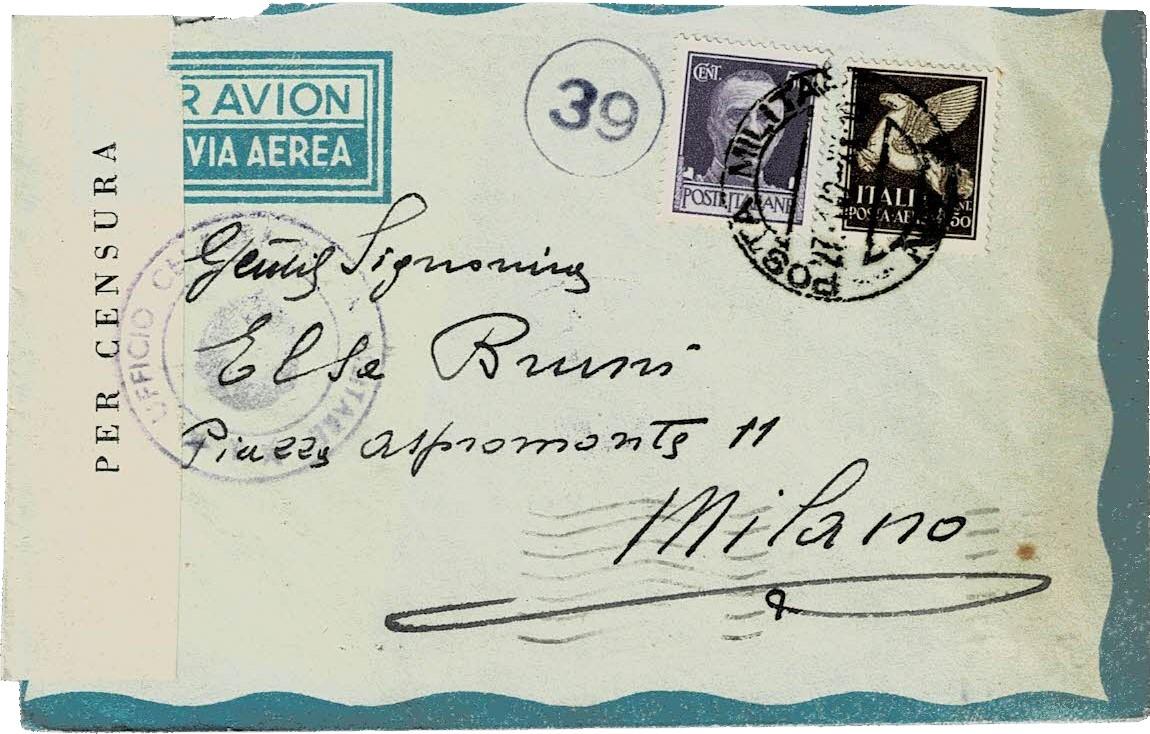 R AVION
VIA AEREA
39
CENT. 50
POSTE ITALIANE
ITALIA
POSTA AEREA
CENT. 50
POSTA MILITARE
PER CENSURA
UFFICIO
Gentil Signorina
Elsa Bruni
Piazza Aspromonte 11
Milano